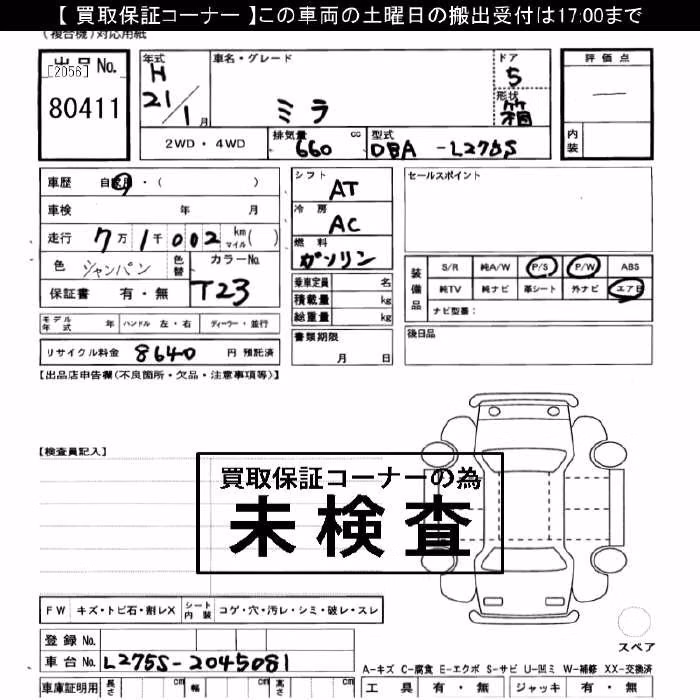 【 買取保証コーナー 】この車両の土曜日の搬出受付は17:00まで
(複合機)対応用紙
出品No. [2056] 80411
年式 H 21/1月
車名・グレード ミラ
ドア 5
形状 箱
評価点 —
内装
2WD・4WD
排気量 660 cc
型式 DBA -L275S
車歴 自家用・( )
車検 年 月
走行 7万1千002 km マイル( )
色 シャンパン 色替
カラーNo. T23
保証書 有・無
シフト AT
冷房 AC
燃料 ガソリン
乗車定員 名
積載量 kg
総重量 kg
書類期限 月 日
セールスポイント
装備品
S/R 純A/W P/S P/W ABS
純TV 純ナビ 革シート 外ナビ エアB
ナビ型番:
後日品
モデル年式 年 ハンドル 左・右 ディーラー・並行
リサイクル料金 8640 円 預託済
【出品店申告欄(不良箇所・欠品・注意事項等)】
【検査員記入】
買取保証コーナーの為
未検査
FW キズ・トビ石・割レX シート内装 コゲ・穴・汚レ・シミ・破レ・スレ
登録No.
車台No. L275S-2045081
車庫証明用 長さ cm 幅 cm 高さ cm
スペア
A-キズ C-腐食 E-エクボ S-サビ U-凹ミ W-補修 XX-交換済
工具 有・無 ジャッキ 有・無